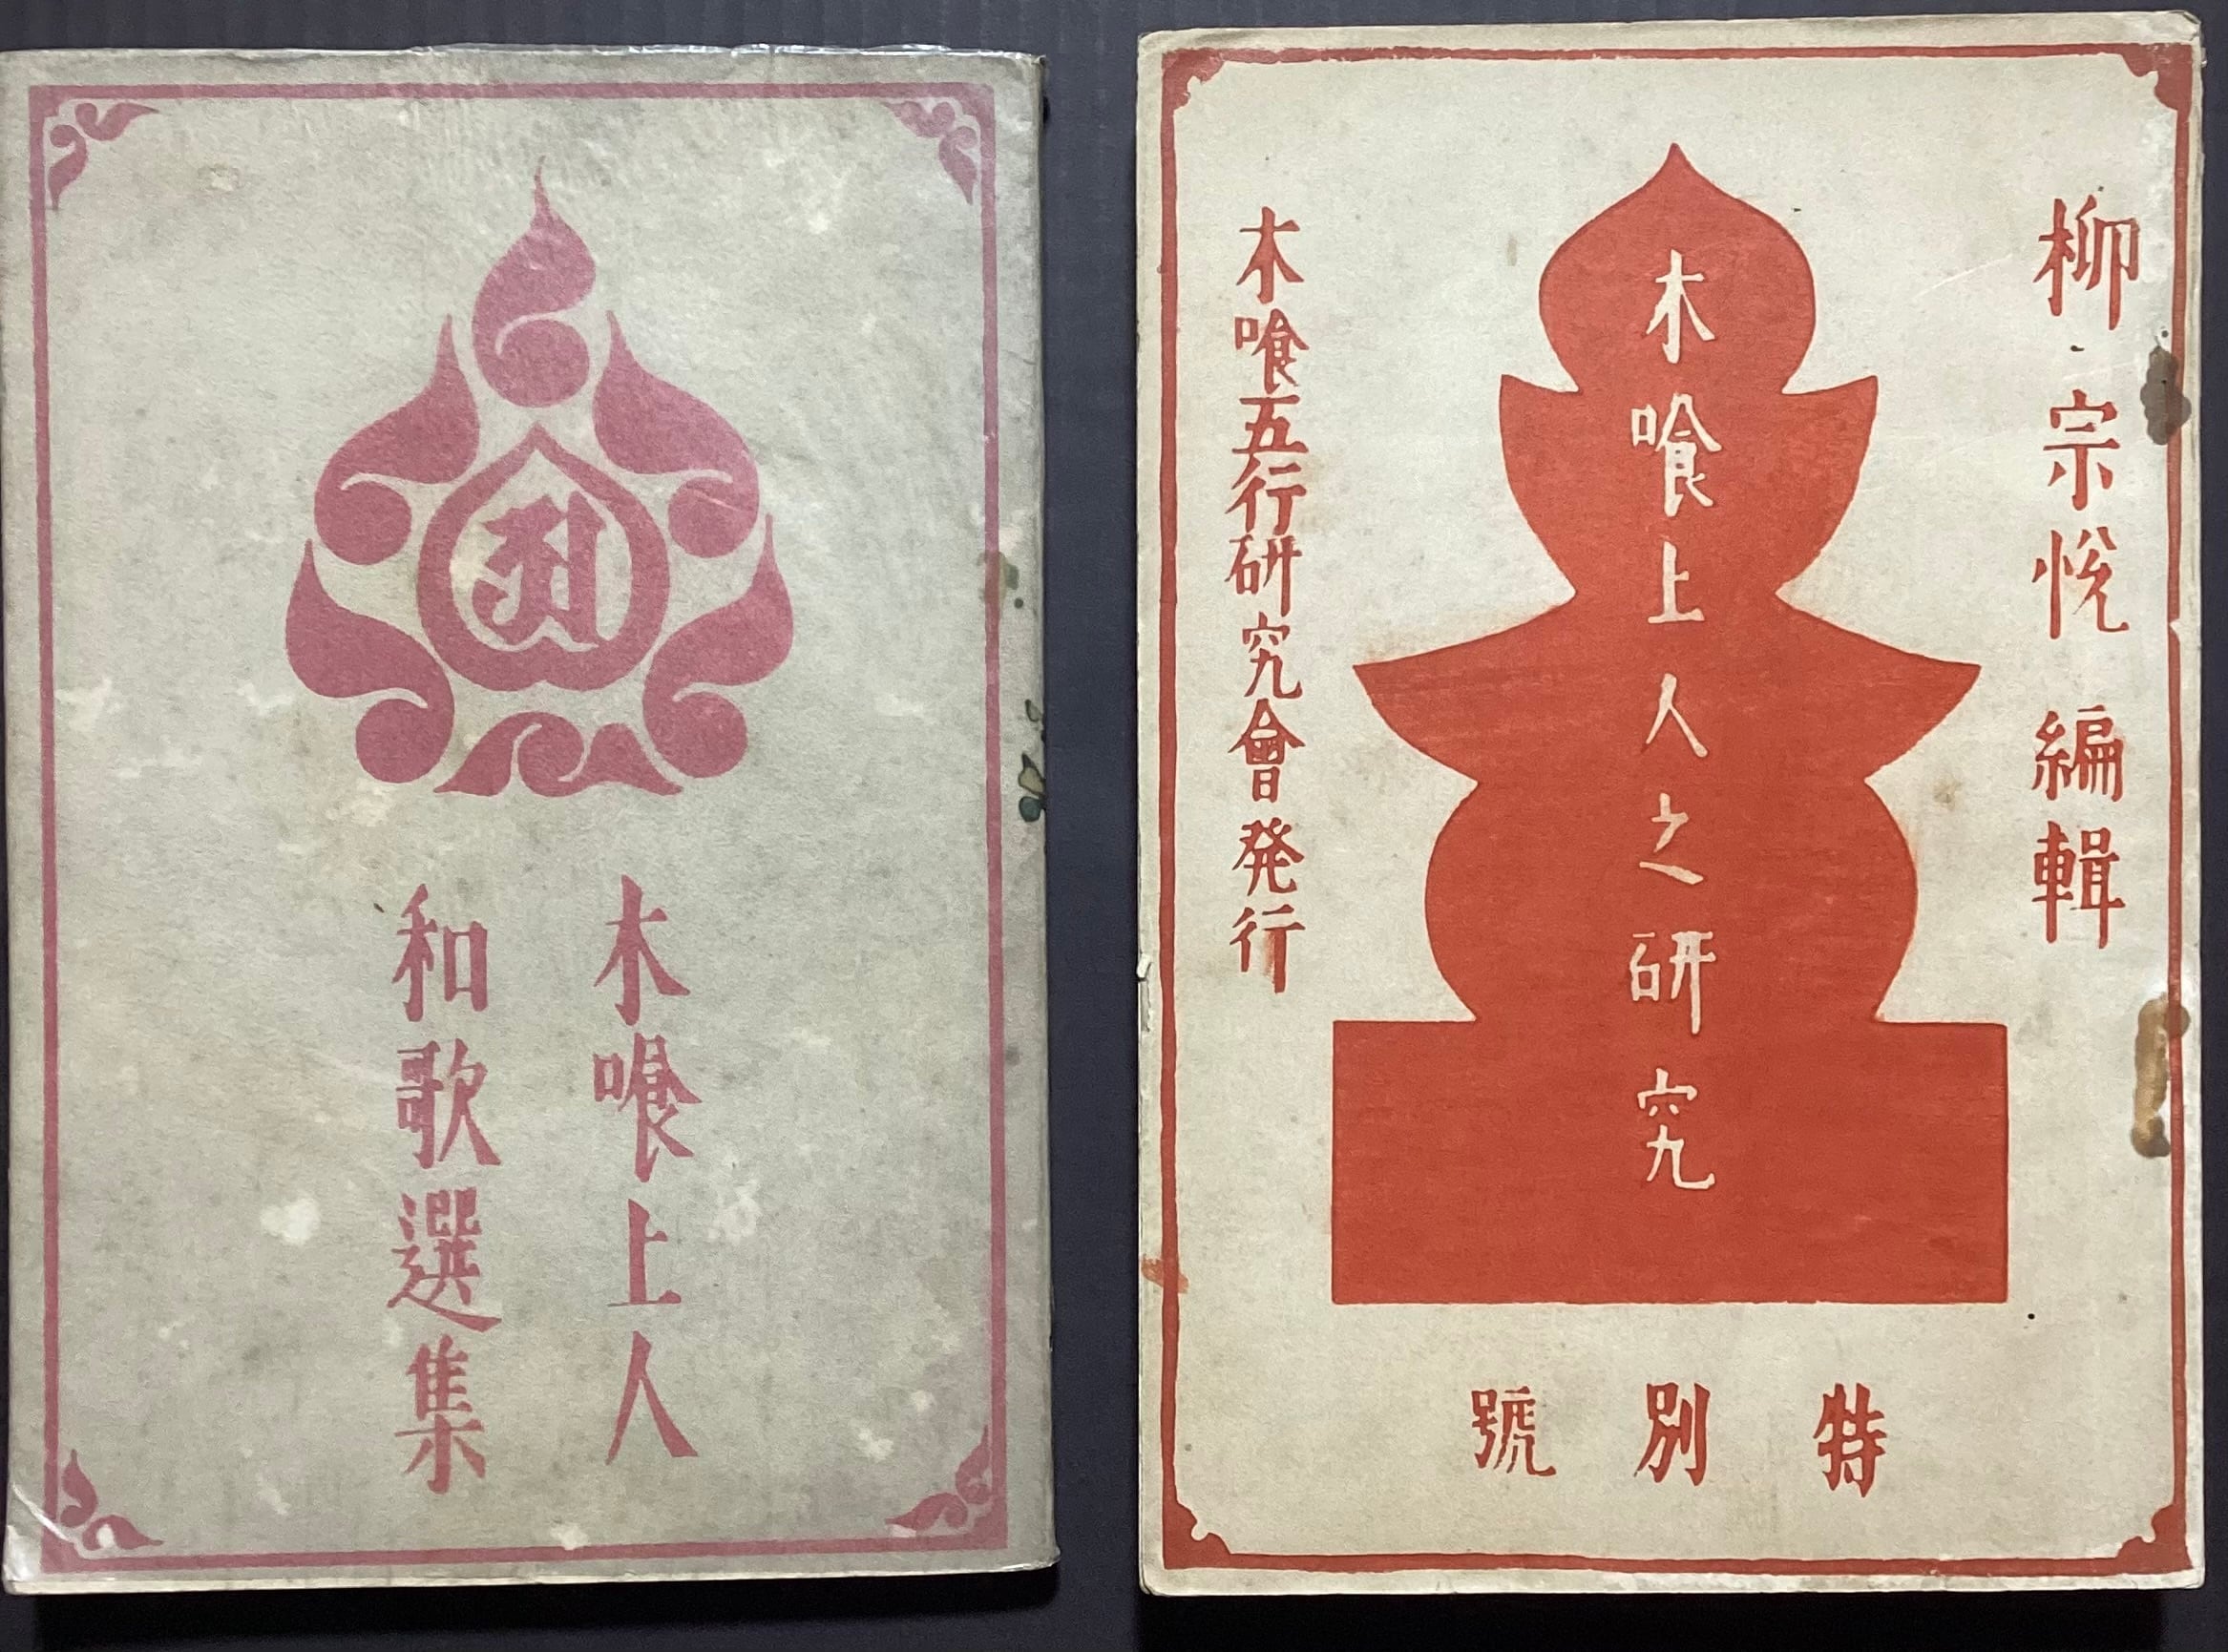 木喰上人
和歌選集
柳宗悦編輯
木喰上人之研究
木喰五行研究會発行
特別號